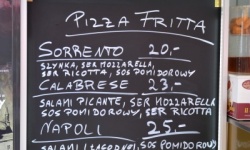 PIZZA FRITTA
SORRENTO 20,-
SZYNKA, SER MOZZARELLA,
SER RICOTTA, SOS POMIDOROWY
CALABRESE 23,-
SALAMI PICANTE, SER MOZZARELLA
SOS POMIDOROWY, SER RICOTTA
NAPOLI 25.-
SALAMI (ŁAGODNE), SOS POMIDOROWY